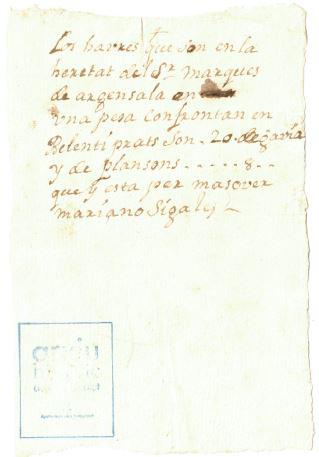 Los harres que son en la
heretat del Sr. marques
de argensala en
una pesa confrontan en
Belenti prats son . 20. de gavia
y de plansons . . . . . 8 . .
que y esta per masover
mariano Sigales
arxiu